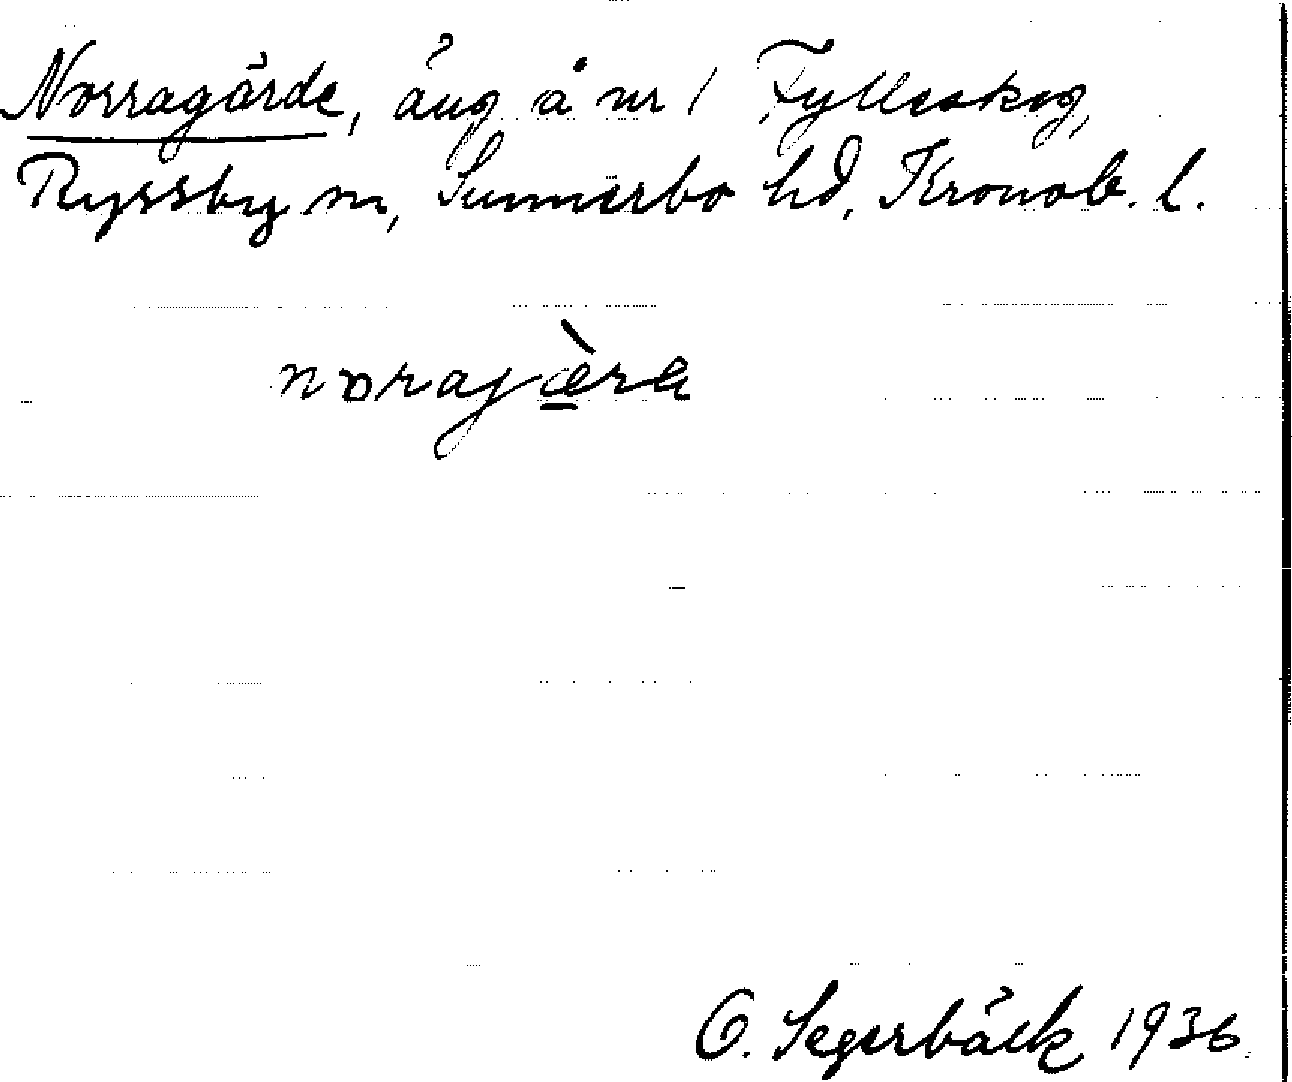 Norragärde, äng å nr 1 Fylleskog,
Ryssby sn, Sunnerbo hd, Kronob. l.
noragæ̀ra
O. Segerbäck 1936